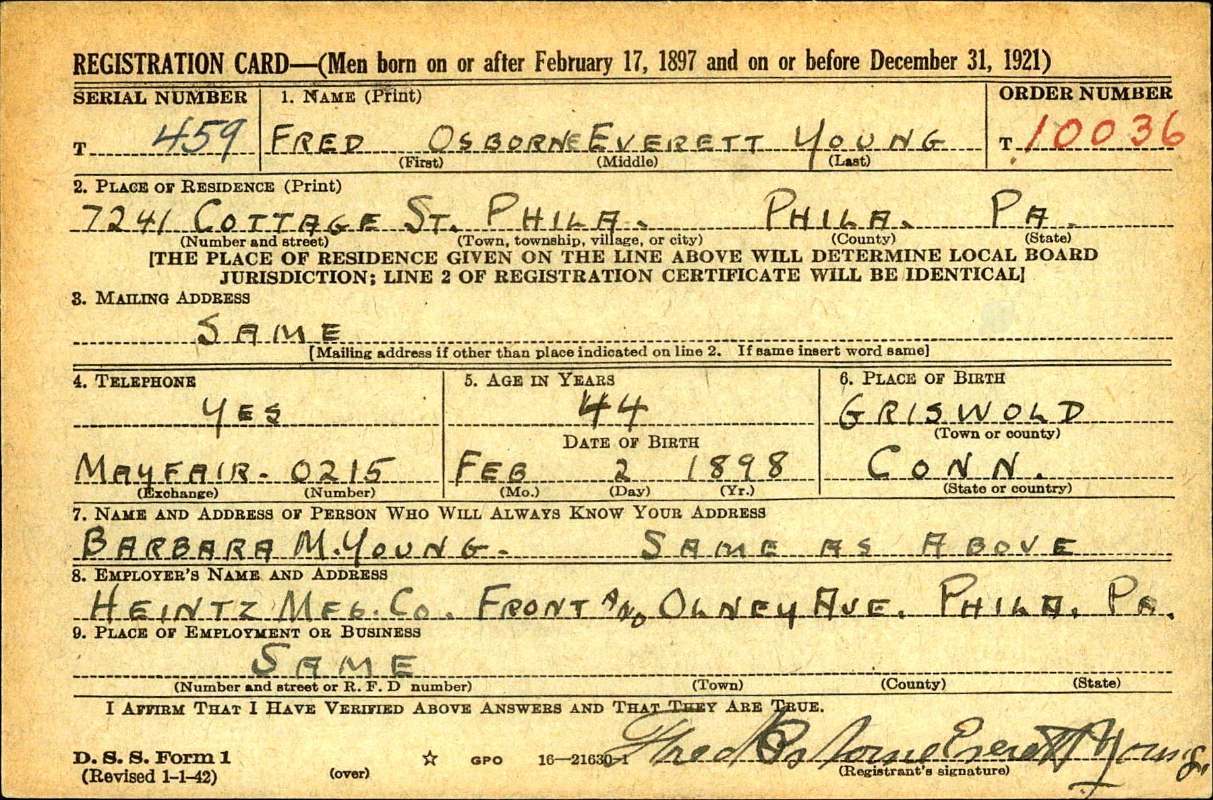 REGISTRATION CARD—(Men born on or after February 17, 1897 and on or before December 31, 1921)
SERIAL NUMBER 1. NAME (Print) ORDER NUMBER
T 459 FRED OSBORNE EVERETT YOUNG T 10036
(First) (Middle) (Last)
2. PLACE OF RESIDENCE (Print)
7241 COTTAGE ST. PHILA. PHILA. PA.
(Number and street) (Town, township, village, or city) (County) (State)
[THE PLACE OF RESIDENCE GIVEN ON THE LINE ABOVE WILL DETERMINE LOCAL BOARD
JURISDICTION; LINE 2 OF REGISTRATION CERTIFICATE WILL BE IDENTICAL]
3. MAILING ADDRESS
SAME
[Mailing address if other than place indicated on line 2. If same insert word same]
4. TELEPHONE 5. AGE IN YEARS 6. PLACE OF BIRTH
YES 44 GRISWOLD
DATE OF BIRTH (Town or county)
MAYFAIR- 0215 FEB 2 1898 CONN.
(Exchange) (Number) (Mo.) (Day) (Yr.) (State or country)
7. NAME AND ADDRESS OF PERSON WHO WILL ALWAYS KNOW YOUR ADDRESS
BARBARA M. YOUNG- SAME AS ABOVE
8. EMPLOYER'S NAME AND ADDRESS
HEINTZ MFG. CO. FRONT AND OLNEY AVE. PHILA. PA.
9. PLACE OF EMPLOYMENT OR BUSINESS
SAME
(Number and street or R. F. D number) (Town) (County) (State)
I AFFIRM THAT I HAVE VERIFIED ABOVE ANSWERS AND THAT THEY ARE TRUE.
Fred Osborne Everett Young.
D. S. S. Form 1
(Revised 1-1-42) (over) ☆ GPO 16—21630-1 (Registrant's signature)